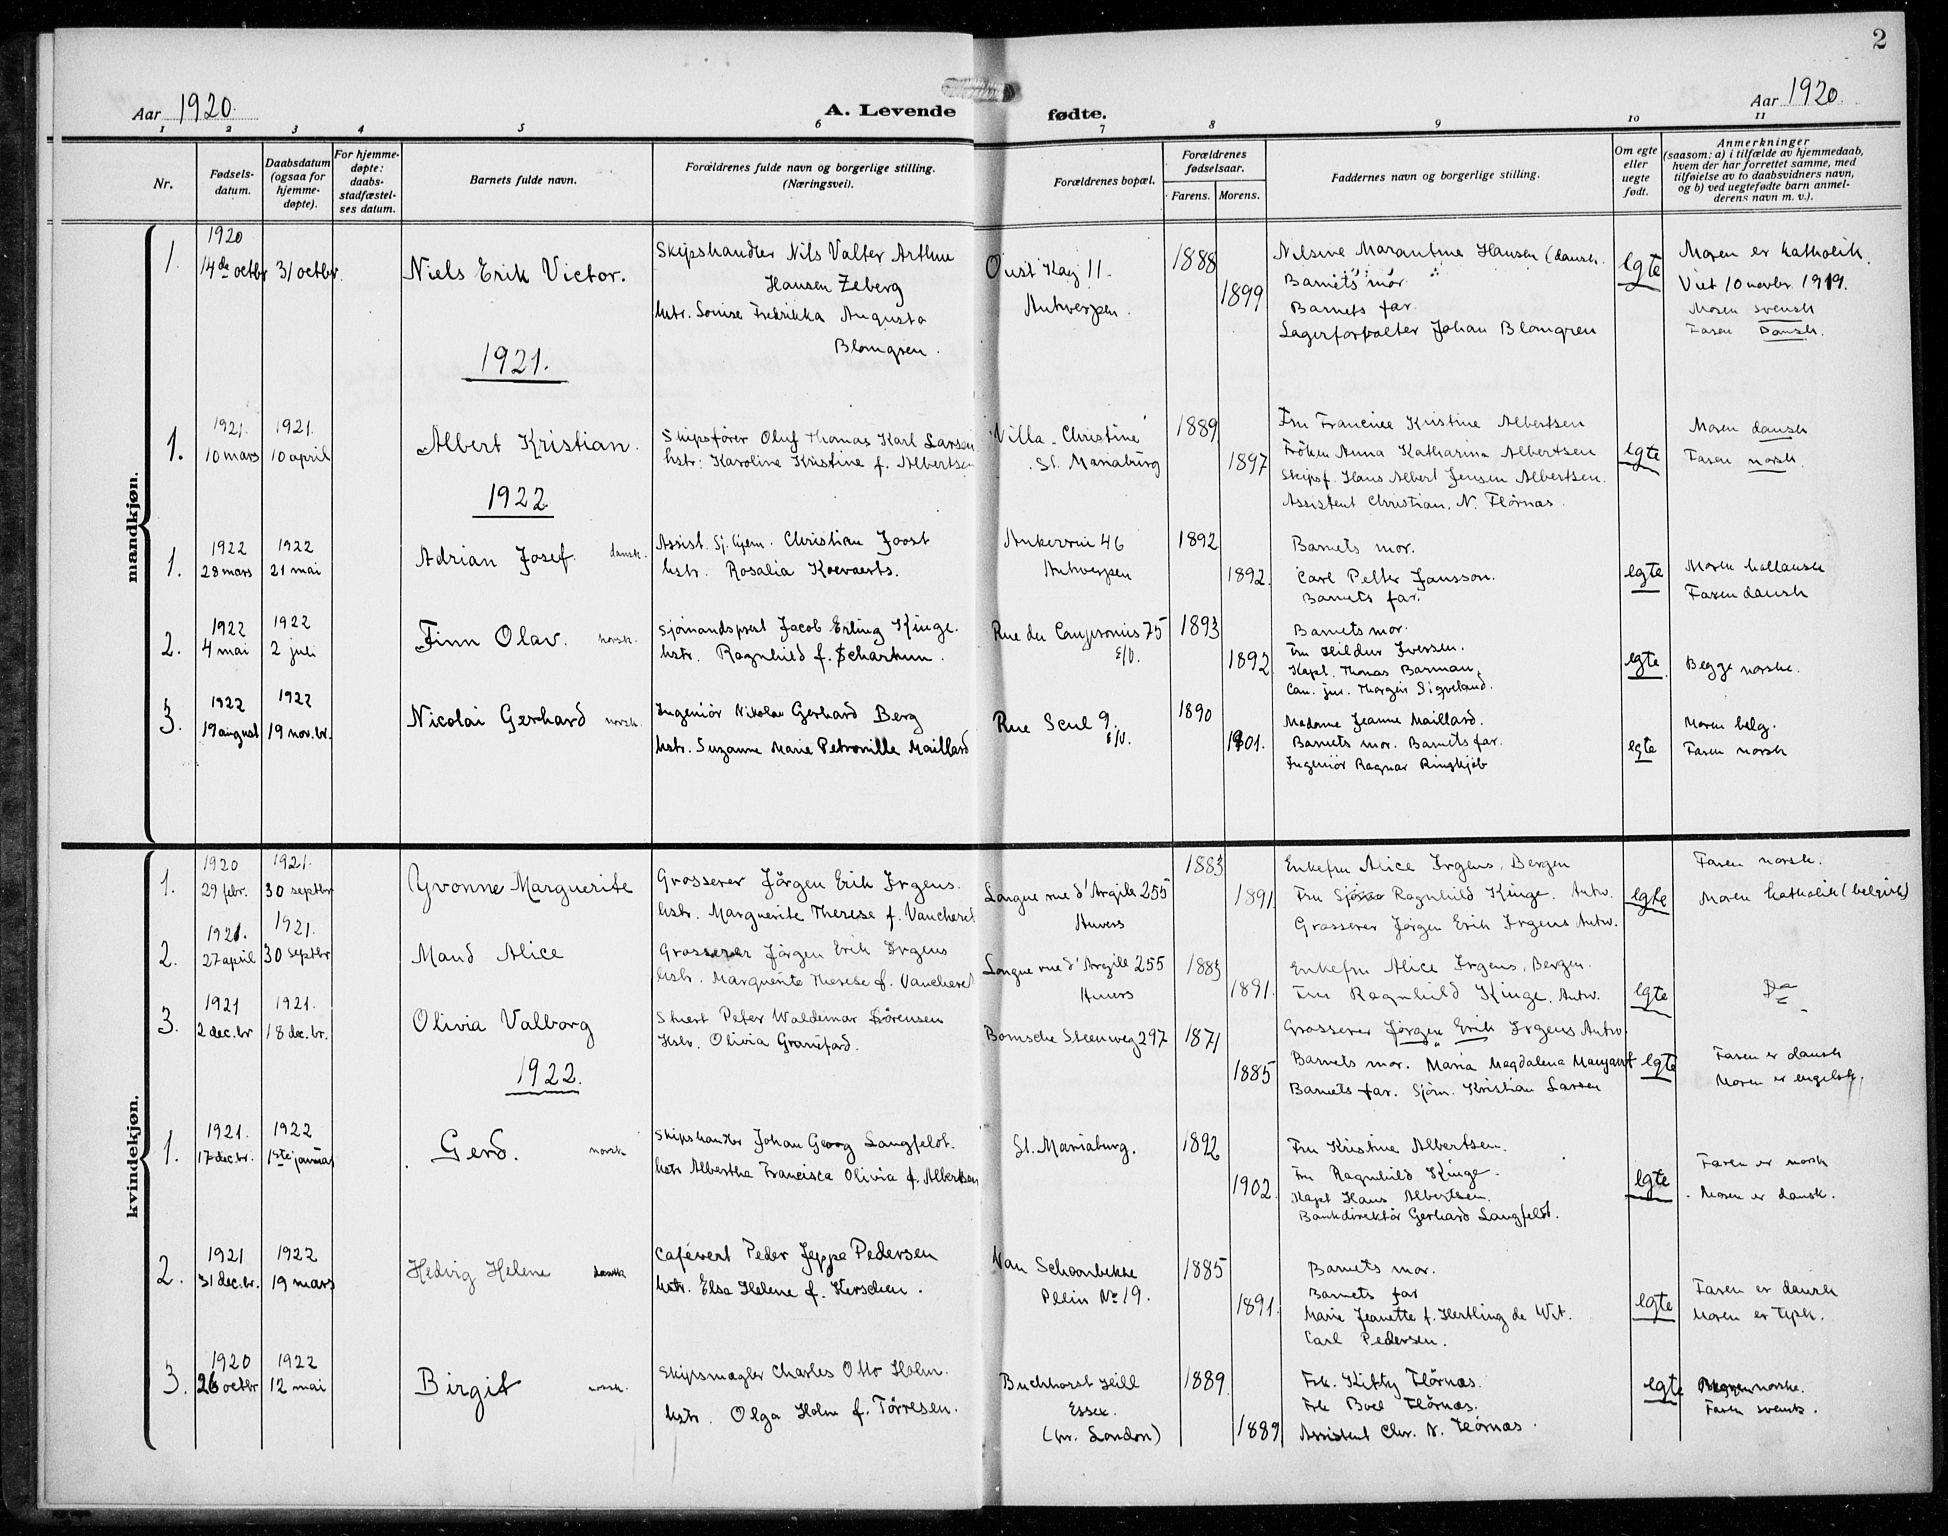 2
Aar 1920.
A. Levende fødte.
Aar 1920.
1 2 3 4 5 6 7 8 9 10 11
Nr.
Fødsels-
datum.
Daabsdatum
(ogsaa for
hjemme-
døpte).
For hjemme-
døpte:
daabs-
stadfæstel-
ses datum.
Barnets fulde navn.
Forældrenes fulde navn og borgerlige stilling.
(Næringsvei).
Forældrenes bopæl.
Forældrenes
fødselsaar.
Farens. Morens.
Faddernes navn og borgerlige stilling.
Om egte
eller
uegte
født.
Anmerkninger
(saasom: a) i tilfælde av hjemmedaab,
hvem der har forrettet samme, med
tilføielse av to daabsvidners navn,
og b) ved uegtefødte barn anmel-
derens navn m. v.).
mandkjøn.
1.
1920
14de octbr
31 octbr.
Niels Erik Victor.
Skipshandler Nils Valter Arthur
Hansen Zeberg
hstr. Louise Fredrikka Augusta
Blomgren.
Oust Kay 11
Antwerpen.
1888
1899
Nilsine Marantine Hansen (dansk.
Barnets mor.
Barnets far.
Lagerforvalter Johan Blomgren
egte
Moren er katholik.
Viet 10 novbr. 1919.
Moren svensk
Faren Dansk.
1921.
1.
1921.
10 mars
1921.
10 april
Albert Kristian.
Skipsfører Oluf Thomas Karl Larsen
hstr: Karoline Kristine f. Albertsen
Villa "Christine"
St. Mariaburg
1889
1897
Fru Francine Kristine Albertsen
Fröken Anna Katharina Albertsen
Skipsf. Hans Albert Jensen Albertsen.
Assistent Christian. N. Flörnæs.
egte
Moren dansk
Faren norsk.
1922
1.
1922
28 mars
1922
21 mai
Adrian Josef. dansk.
Assist. Sj. hjem. Christian Joost
hstr. Rosalia Koevaerts.
Ankerrui 46
Antwerpen
1892
1892.
Barnets mor.
Carl Petter Jansson.
Barnets far.
egte
Moren hollansk
Faren dansk
2.
1922
4 mai
1922
2 juli
Finn Olav. norsk.
Sjömandsprest Jacob Erling Kinge.
hstr. Ragnhild f. Scharhun.
Rue du Compromis 75
E/V.
1893
1892
Barnets mor.
Fru Hildur Iversen.
Kapt. Thomas Barman.
Can. jur. Thorgeir Sigveland.
egte
Begge norske.
3.
1922
19 august
1922
19 nov.br.
Nicolai Gerhard norsk.
Ingeniör Nikolai Gerhard Berg
hstr. Suzanne Marie Petronille Maillard
Rue Scul 9.
E/V.
1890
1901.
Madame Jeanne Maillard.
Barnets mor. Barnets far.
Ingeniör Ragnar Ringkjöb
egte
Moren belg.
Faren norsk
kvindekjøn.
1.
1920
29 febr.
1921.
30 septbr
Yvonne Marguerite
Grosserer Jörgen Erik Irgens.
hstr. Marguerite Therese f. Vaucheret
Longue rue d'Argile 255
Anvers
1883
1891
Enkefru Alice Irgens, Bergen
Fru Ragnhild Kinge. Antw.
Grosserer Jörgen Erik Irgens Antw.
egte
Faren norsk.
Moren katholik (belgisk)
2.
1921.
27 april
1921.
30 septbr
Maud Alice
Grosserer Jörgen Erik Irgens
hstr. Marguerite Therese f. Vaucheret
Longue rue d'Argile 255
Anvers
1883
1891.
Enkefru Alice Irgens, Bergen.
Fru Ragnhild Kinge. Antw.
Grosserer Jörgen Erik Irgens Antw.
egte
Do
3.
1921
2 dec.br
1921.
18 dec.br.
Olivia Valborg
Stuert Peter Waldemar Sörensen
Hstr. Olivia
Bomsche Steenweg 297
1871
1885
Barnets mor. Maria Magdalena
Barnets far. Sjöm. Kristian Larsen
egte
Faren er dansk
Moren er engelsk.
1922.
1.
1921.
17 dec.br.
1922
1ste januar
Gerd. norsk
Skipshandler Johan Georg Langfeldt.
hstr Albertha Francisca Olivia f. Albertsen
St. Mariaburg.
1892
1902.
Fru Kristine Albertsen.
Fru Ragnhild Kinge.
Kapt Hans Albertsen.
Bankdirektör Gerhard Langfeldt.
egte
Faren er norsk
Moren er dansk.
2.
1921
31 dec.br.
1922
19 mars
Hedvig Helene dansk
Cafévert Peder Jeppe Pedersen
hstr. Elsa Helene f. Kerschen.
Van Schoonbekke
Plein No 19.
1885
1891.
Barnets mor.
Barnets far
Marie Jeanette f. Hertling de Wit.
Carl Pedersen.
egte
Faren er dansk
Moren er tysk.
3.
1920
26 octbr
1922
12 mai
Birgit norsk.
Skipsmægler Charles Otto Holm.
hstr. Olga Holm f. Törresen.
Buchhorst Hill
Essex.
(nr. London)
1889
1889
Frk. Kitty Flörnæs.
Frk Boel Flörnæs.
Assistent Chr. N. Flörnæs.
egte
norske.
Faren svensk.